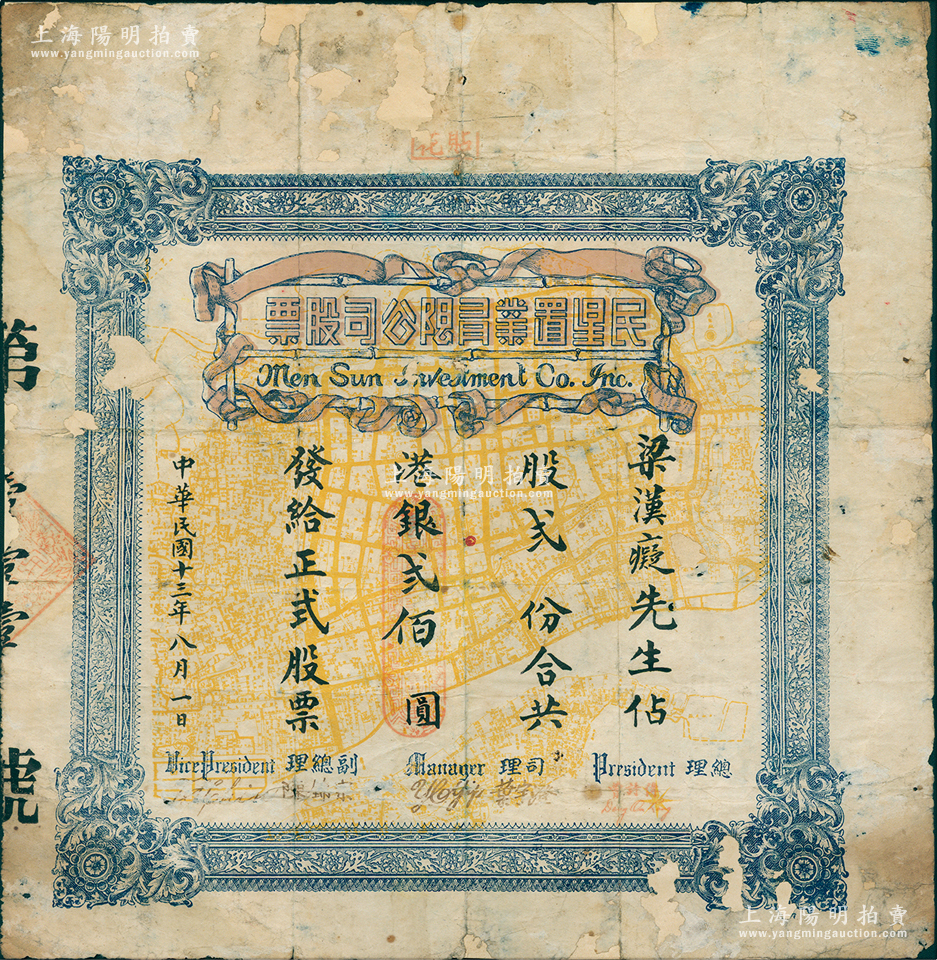 上海陽明拍賣
www.yangmingauction.com
民星置業有限公司股票
Men Sun Investment Co. Inc.
梁漢癡先生佔
股弍份合共
港銀弍佰圓
發給正式股票
中華民國十三年八月一日
總理 President
司理 Manager
副總理 Vice President
第壹壹壹號
上海陽明拍賣
www.yangmingauction.com
上海陽明拍賣
www.yangmingauction.com